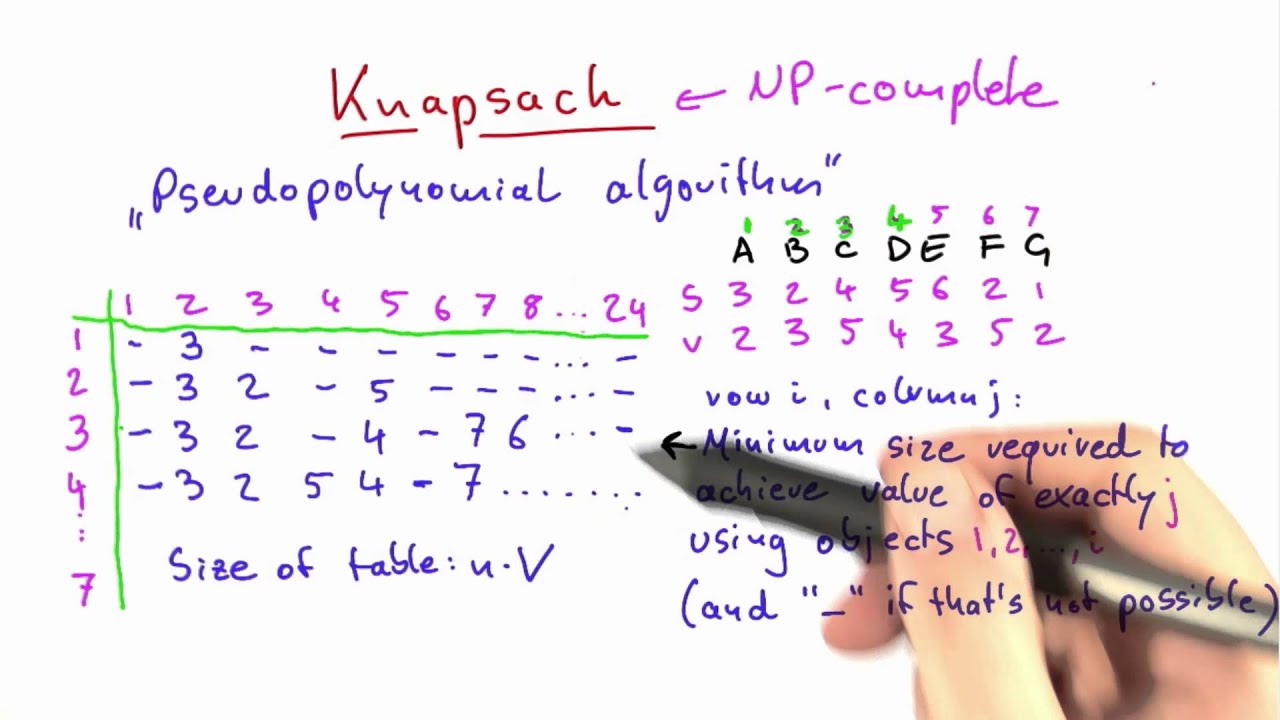 Knapsack ← NP-complete
„Pseudopolynomial algorithm“
1 2 3 4 5 6 7
A B C D E F G
S 3 2 4 5 6 2 1
V 2 3 5 4 3 5 2
1 2 3 4 5 6 7 8 ... 24
1 - 3 - - - - - - ... -
2 - 3 2 - 5 - - - ... -
3 - 3 2 - 4 - 7 6 ... -
4 - 3 2 5 4 - 7 ........
:
7
Size of table: n·V
row i, column j:
← Minimum size required to
achieve value of exactly j
using objects 1, 2, ..., i
(and "–" if that's not possible)